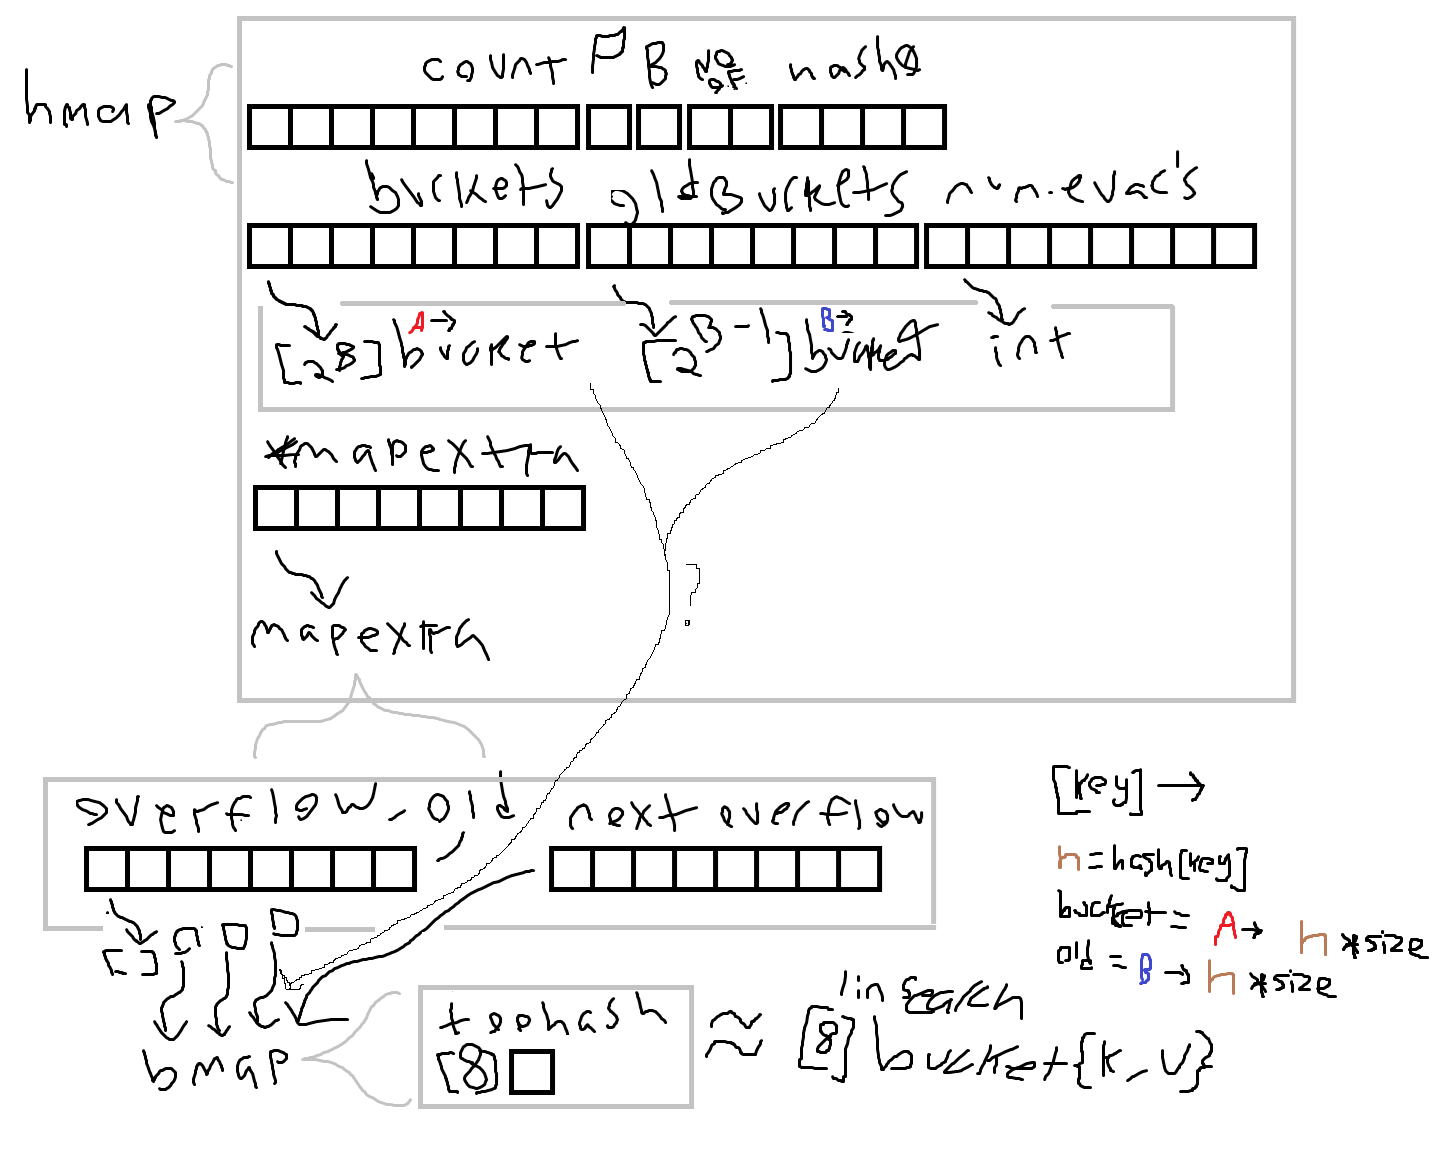 hmap
count P B NO OF. hash0
buckets oldBuckets num.evac's
A→ B→
[2^B] bucket [2^B-1] bucket int
*mapextra
?
mapextra
overflow, old next overflow
[]
bmap
tophash
[8]
≈
lin search
[8] bucket{k,v}
[key] →
h=hash[key]
bucket = A→ h*size
old = B→ h*size